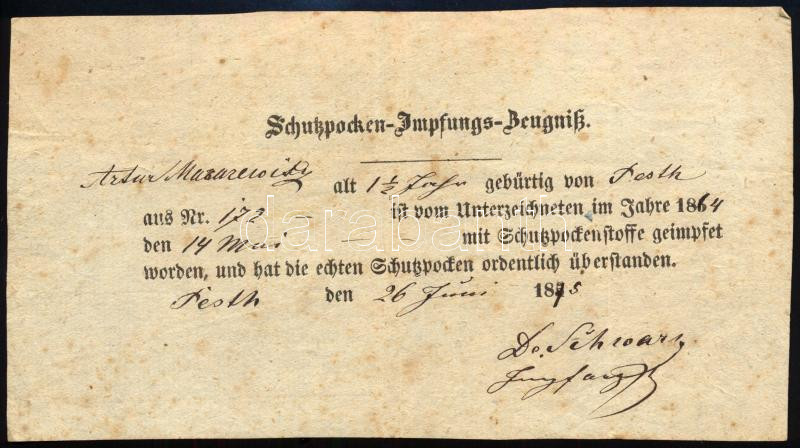 Schutzpocken-Impfungs-Zeugniß.
Artur alt 1½ Jahr gebürtig von Pesth
aus Nr. 172 — ist vom Unterzeichneten im Jahre 1864
den 14 Mai — — mit Schutzpockenstoffe geimpfet
worden, und hat die echten Schutzpocken ordentlich überstanden.
Pesth den 26 Juni 1875
Dr. Schwarz
Impfarzt
darabanth